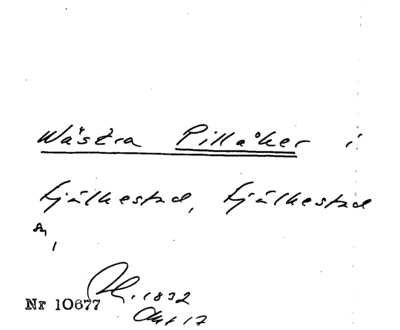 Wästra Pillåker i
Fjälkestad, Fjälkestad
sn,
Nr 10677 1832
Akt 17